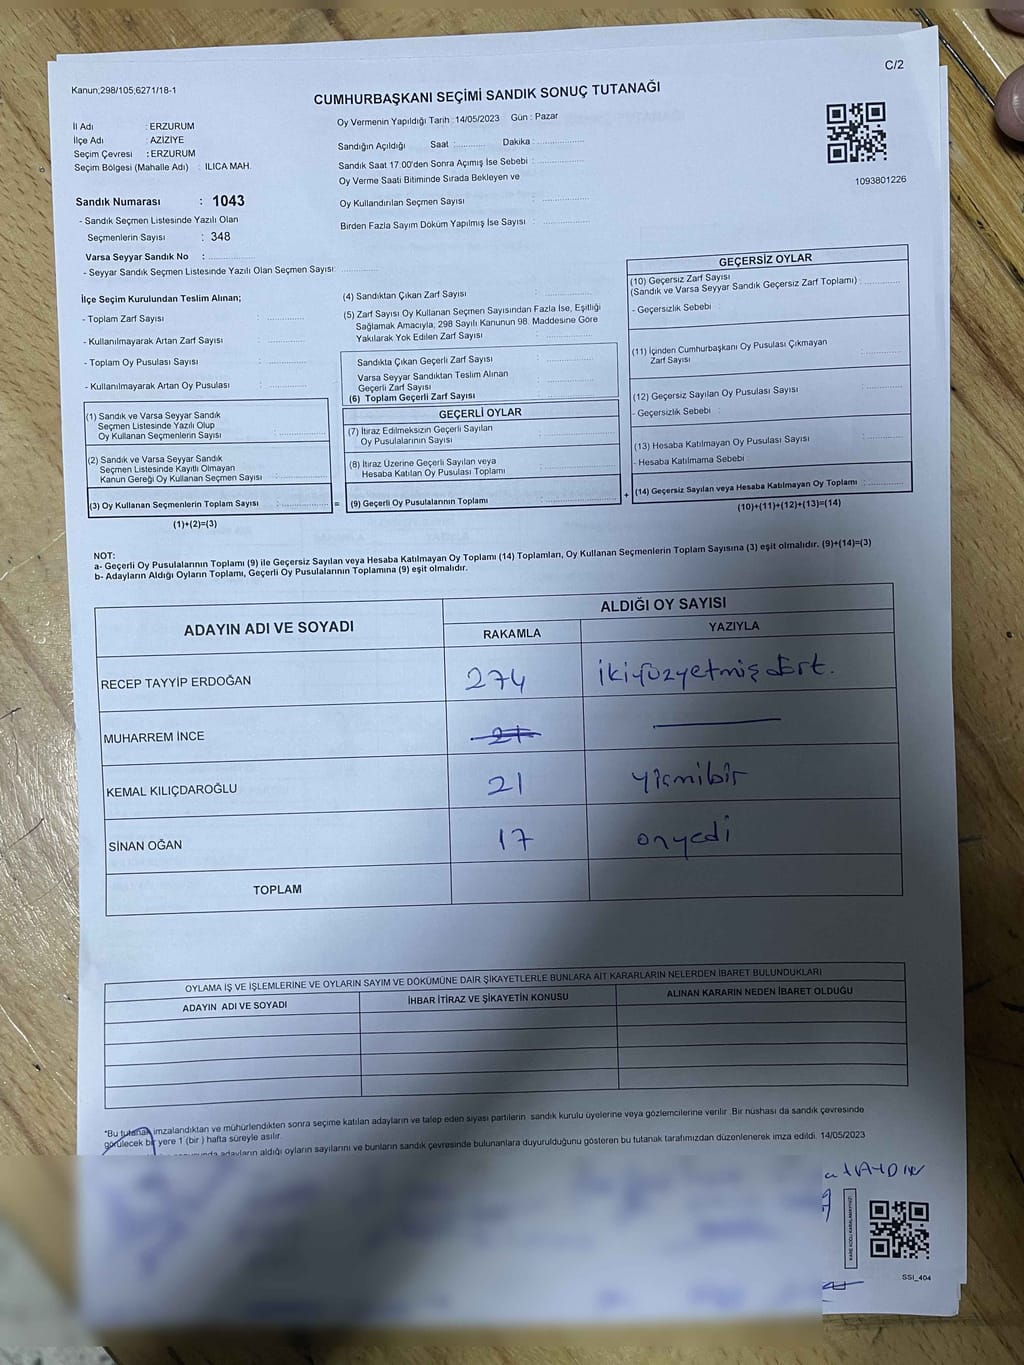 C/2
Kanun;298/105;6271/18-1
CUMHURBAŞKANI SEÇİMİ SANDIK SONUÇ TUTANAĞI
İl Adı : ERZURUM
İlçe Adı : AZİZİYE
Seçim Çevresi : ERZURUM
Seçim Bölgesi (Mahalle Adı) : ILICA MAH.
Sandık Numarası : 1043
- Sandık Seçmen Listesinde Yazılı Olan
Seçmenlerin Sayısı : 348
Varsa Seyyar Sandık No : ................
- Seyyar Sandık Seçmen Listesinde Yazılı Olan Seçmen Sayısı: ............
Oy Vermenin Yapıldığı Tarih :14/05/2023 Gün : Pazar
Sandığın Açıldığı Saat :.......... Dakika :................
Sandık Saat 17.00'den Sonra Açımış İse Sebebi :................
Oy Verme Saati Bitiminde Sırada Bekleyen ve
Oy Kullandırılan Seçmen Sayısı :................
Birden Fazla Sayım Döküm Yapılmış İse Sayısı :................
1093801226
İlçe Seçim Kurulundan Teslim Alınan;
- Toplam Zarf Sayısı : ............
- Kullanılmayarak Artan Zarf Sayısı : ............
- Toplam Oy Pusulası Sayısı : ............
- Kullanılmayarak Artan Oy Pusulası : ............
(1) Sandık ve Varsa Seyyar Sandık
Seçmen Listesinde Yazılı Olup
Oy Kullanan Seçmenlerin Sayısı : ................
(2) Sandık ve Varsa Seyyar Sandık
Seçmen Listesinde Kayıtlı Olmayan
Kanun Gereği Oy Kullanan Seçmen Sayısı : ................
(3) Oy Kullanan Seçmenlerin Toplam Sayısı : ................ =
(1)+(2)=(3)
(4) Sandıktan Çıkan Zarf Sayısı : ................
(5) Zarf Sayısı Oy Kullanan Seçmen Sayısından Fazla İse, Eşitliği
Sağlamak Amacıyla, 298 Sayılı Kanunun 98. Maddesine Göre
Yakılarak Yok Edilen Zarf Sayısı : ................
Sandıkta Çıkan Geçerli Zarf Sayısı : ................
Varsa Seyyar Sandıktan Teslim Alınan
Geçerli Zarf Sayısı : ................
(6) Toplam Geçerli Zarf Sayısı : ................
GEÇERLİ OYLAR
(7) İtiraz Edilmeksizin Geçerli Sayılan
Oy Pusulalarının Sayısı : ................
(8) İtiraz Üzerine Geçerli Sayılan veya
Hesaba Katılan Oy Pusulası Toplamı : ................
(9) Geçerli Oy Pusulalarının Toplamı : ................ +
GEÇERSİZ OYLAR
(10) Geçersiz Zarf Sayısı
(Sandık ve Varsa Seyyar Sandık Geçersiz Zarf Toplamı) : ............
- Geçersizlik Sebebi :
(11) İçinden Cumhurbaşkanı Oy Pusulası Çıkmayan
Zarf Sayısı : ............
(12) Geçersiz Sayılan Oy Pusulası Sayısı : ............
- Geçersizlik Sebebi :
(13) Hesaba Katılmayan Oy Pusulası Sayısı : ............
- Hesaba Katılmama Sebebi :
(14) Geçersiz Sayılan veya Hesaba Katılmayan Oy Toplamı : ............
(10)+(11)+(12)+(13)=(14)
NOT:
a- Geçerli Oy Pusulalarının Toplamı (9) ile Geçersiz Sayılan veya Hesaba Katılmayan Oy Toplamı (14) Toplamları, Oy Kullanan Seçmenlerin Toplam Sayısına (3) eşit olmalıdır. (9)+(14)=(3)
b- Adayların Aldığı Oyların Toplamı, Geçerli Oy Pusulalarının Toplamına (9) eşit olmalıdır.
ADAYIN ADI VE SOYADI ALDIĞI OY SAYISI
RAKAMLA YAZIYLA
RECEP TAYYİP ERDOĞAN 274 ikiyüzyetmişdört.
MUHARREM İNCE 21
KEMAL KILIÇDAROĞLU 21 yirmibir
SİNAN OĞAN 17 onyedi
TOPLAM
OYLAMA İŞ VE İŞLEMLERİNE VE OYLARIN SAYIM VE DÖKÜMÜNE DAİR ŞİKAYETLERLE BUNLARA AİT KARARLARIN NELERDEN İBARET BULUNDUKLARI
ADAYIN ADI VE SOYADI İHBAR İTİRAZ VE ŞİKAYETİN KONUSU ALINAN KARARIN NEDEN İBARET OLDUĞU
*Bu tutanak imzalandıktan ve mühürlendikten sonra seçime katılan adayların ve talep eden siyasi partilerin sandık kurulu üyelerine veya gözlemcilerine verilir. Bir nüshası da sandık çevresinde
görülecek bir yere 1 (bir ) hafta süreyle asılır.
adayların aldığı oyların sayılarını ve bunların sandık çevresinde bulunanlara duyurulduğunu gösteren bu tutanak tarafımızdan düzenlenerek imza edildi. 14/05/2023
KARE KODU KARALAMAYINIZ!
SSI_404